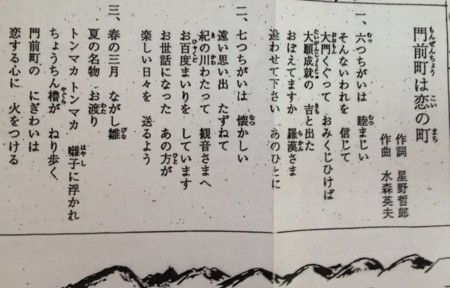 門前町は恋の町
作詞 星野哲郎
作曲 水森英夫
一、六つちがいは 睦まじい
そんないわれを 信じて
大門くぐって おみくじひけば
大願成就の 吉と出た
おぼえてますか 羅漢さま
逢わせて下さい あのひとに
二、七つちがいは 懐かしい
遠い思い出 たずねて
紀の川わたって 観音さまへ
お百度まいりを しています
お世話になった あの方が
楽しい日々を 送るよう
三、春の三月 ながし雛
夏の名物 お渡り
トンマカ トンマカ 囃子に浮かれ
ちょうちん櫓が ねり歩く
門前町の にぎわいは
恋する心に 火をつける